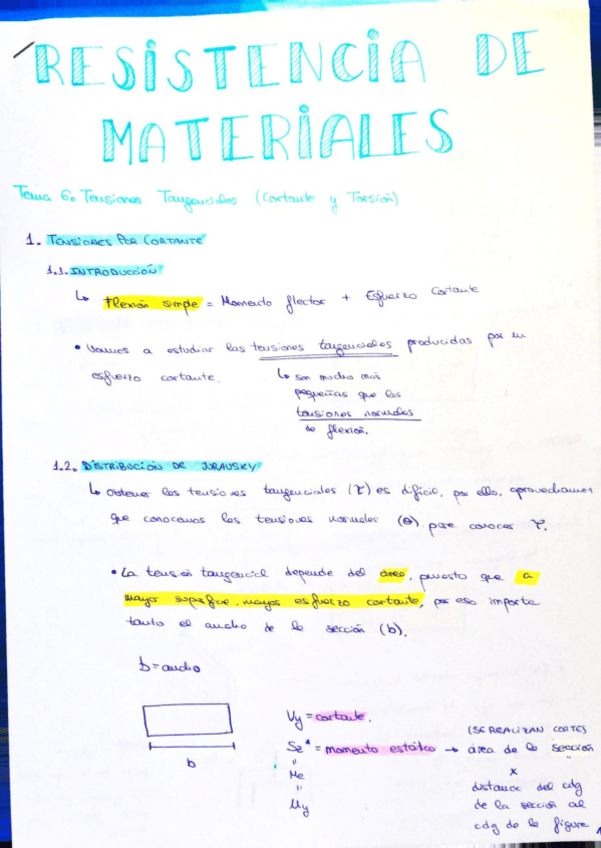 RESISTENCIA DE
MATERIALES
Tema 6. Tensiones Tangenciales (Cortante y Torsión)
1. TENSIONES POR CORTANTE
1.1. INTRODUCCIÓN
↳ Flexión simple = Momento flector + Esfuerzo Cortante
• Vamos a estudiar las tensiones tangenciales producidas por un
esfuerzo cortante.
↳ son mucho más
pequeñas que las
tensiones normales
de flexión.
1.2. DISTRIBUCIÓN DE JURAUSKY
↳ Obtener las tensiones tangenciales (τ) es difícil, por ello, aprovechamos
que conocemos las tensiones normales (θ) para conocer τ.
• La tensión tangencial depende del área, puesto que a
mayor superficie, mayor esfuerzo cortante, por eso importa
tanto el ancho de la sección (b).
b = ancho
b
Vy = cortante.
Sz* = momento estático → área de la sección
"
Me
"
My
(SE REALIZAN CORTES
x
distancia del cdg
de la sección al
cdg de la figura
1